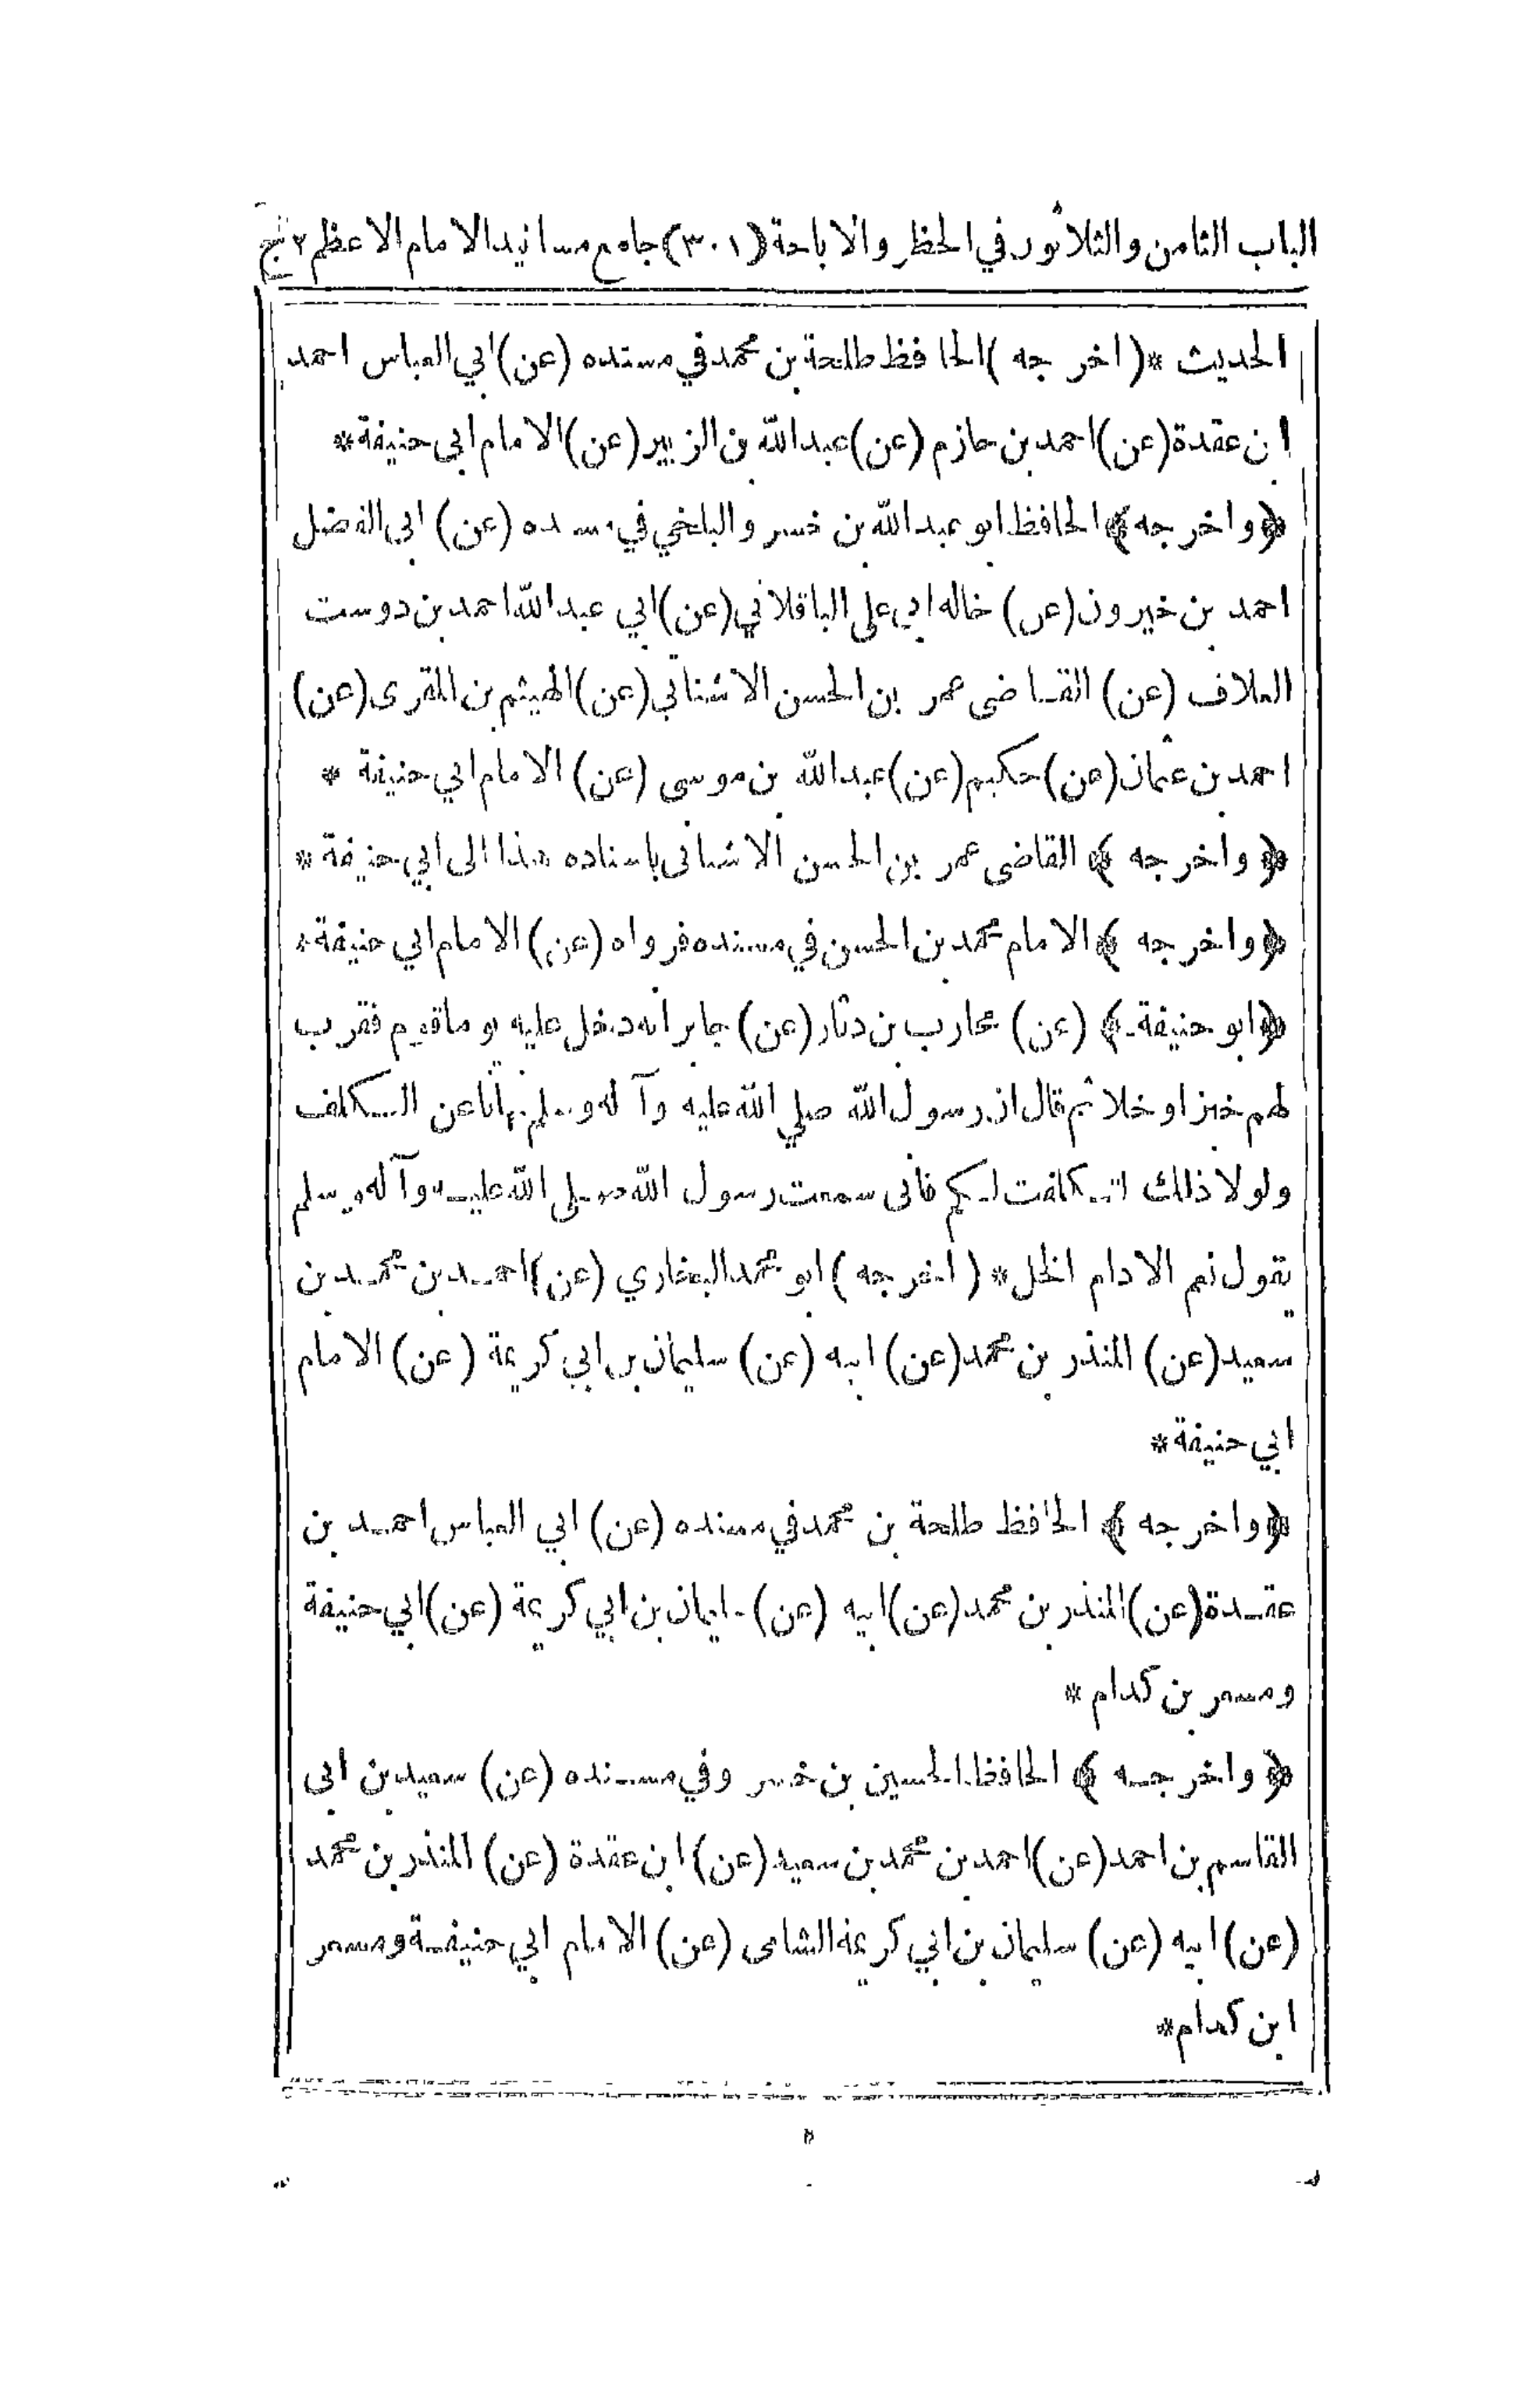 الباب الثامن والثلاثون في الحظر والاباحة (٣٠١) جامع مسانيد الامام الاعظم ج٢
الحديث *( اخرجه )الحافظ طلحة بن محمد في مسنده (عن) ابي العباس احمد
ابن عقدة (عن) احمد بن حازم (عن) عبد الله بن الزبير (عن) الامام ابي حنيفة *
﴿واخرجه﴾ الحافظ ابو عبد الله بن خسرو البلخي في مسنده (عن) ابي الفضل
احمد بن خيرون (عن) خاله ابي علي الباقلاني (عن) ابي عبد الله احمد بن دوست
العلاف (عن) القاضي عمر بن الحسن الاشناني (عن) الهيثم بن المقرى (عن)
احمد بن عثمان (عن) حكيم (عن) عبد الله بن موسى (عن) الامام ابي حنيفة *
﴿ واخرجه ﴾ القاضي عمر بن الحسن الاشناني باسناده هذا الى ابي حنيفة *
﴿ واخرجه ﴾ الامام محمد بن الحسن في مسنده فرواه (عن) الامام ابي حنيفة *
﴿ابو حنيفة﴾ (عن) محارب بن دثار (عن) جابر انه دخل عليه يوما قوم فقرب
لهم خبزا وخلا ثم قال ان رسول الله صلي الله عليه وآله وسلم نهانا عن التكلف
ولولا ذلك لتكلفت لكم فانى سمعت رسول الله صلى الله عليه وآله وسلم
يقول نعم الادام الخل * ( اخرجه ) ابو محمد البخاري (عن) احمد بن محمد بن
سعيد (عن) المنذر بن محمد (عن) ابيه (عن) سليمان بن ابي كريمة (عن) الامام
ابي حنيفة *
﴿واخرجه ﴾ الحافظ طلحة بن محمد في مسنده (عن) ابي العباس احمد بن
عقدة (عن) المنذر بن محمد (عن) ابيه (عن) سليمان بن ابي كريمة (عن) ابي حنيفة
ومسعر بن كدام *
﴿ واخرجه ﴾ الحافظ الحسين بن خسرو في مسنده (عن) سعيد بن ابى
القاسم بن احمد (عن) احمد بن محمد بن سعيد (عن) ابن عقدة (عن) المنذر بن محمد
(عن) ابيه (عن) سليمان بن ابي كريمة الشامى (عن) الامام ابي حنيفة ومسعر
ابن كدام *